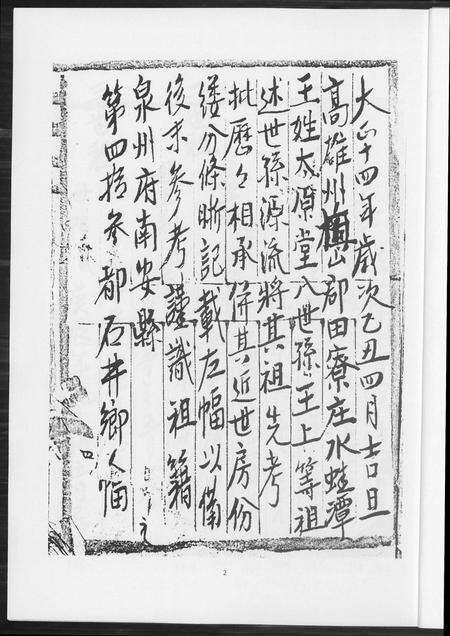 大正十四年歲次乙丑四月吉旦
高雄州旗山郡田寮庄水蛙潭
王姓太原堂八世孫王上等祖
述世孫源流將其祖先考
批歷々相承併其近世房份
縷分條晰記載左幅以備
後來參考謹識祖籍
泉州府南安縣
第四拾參都石井鄉人
2